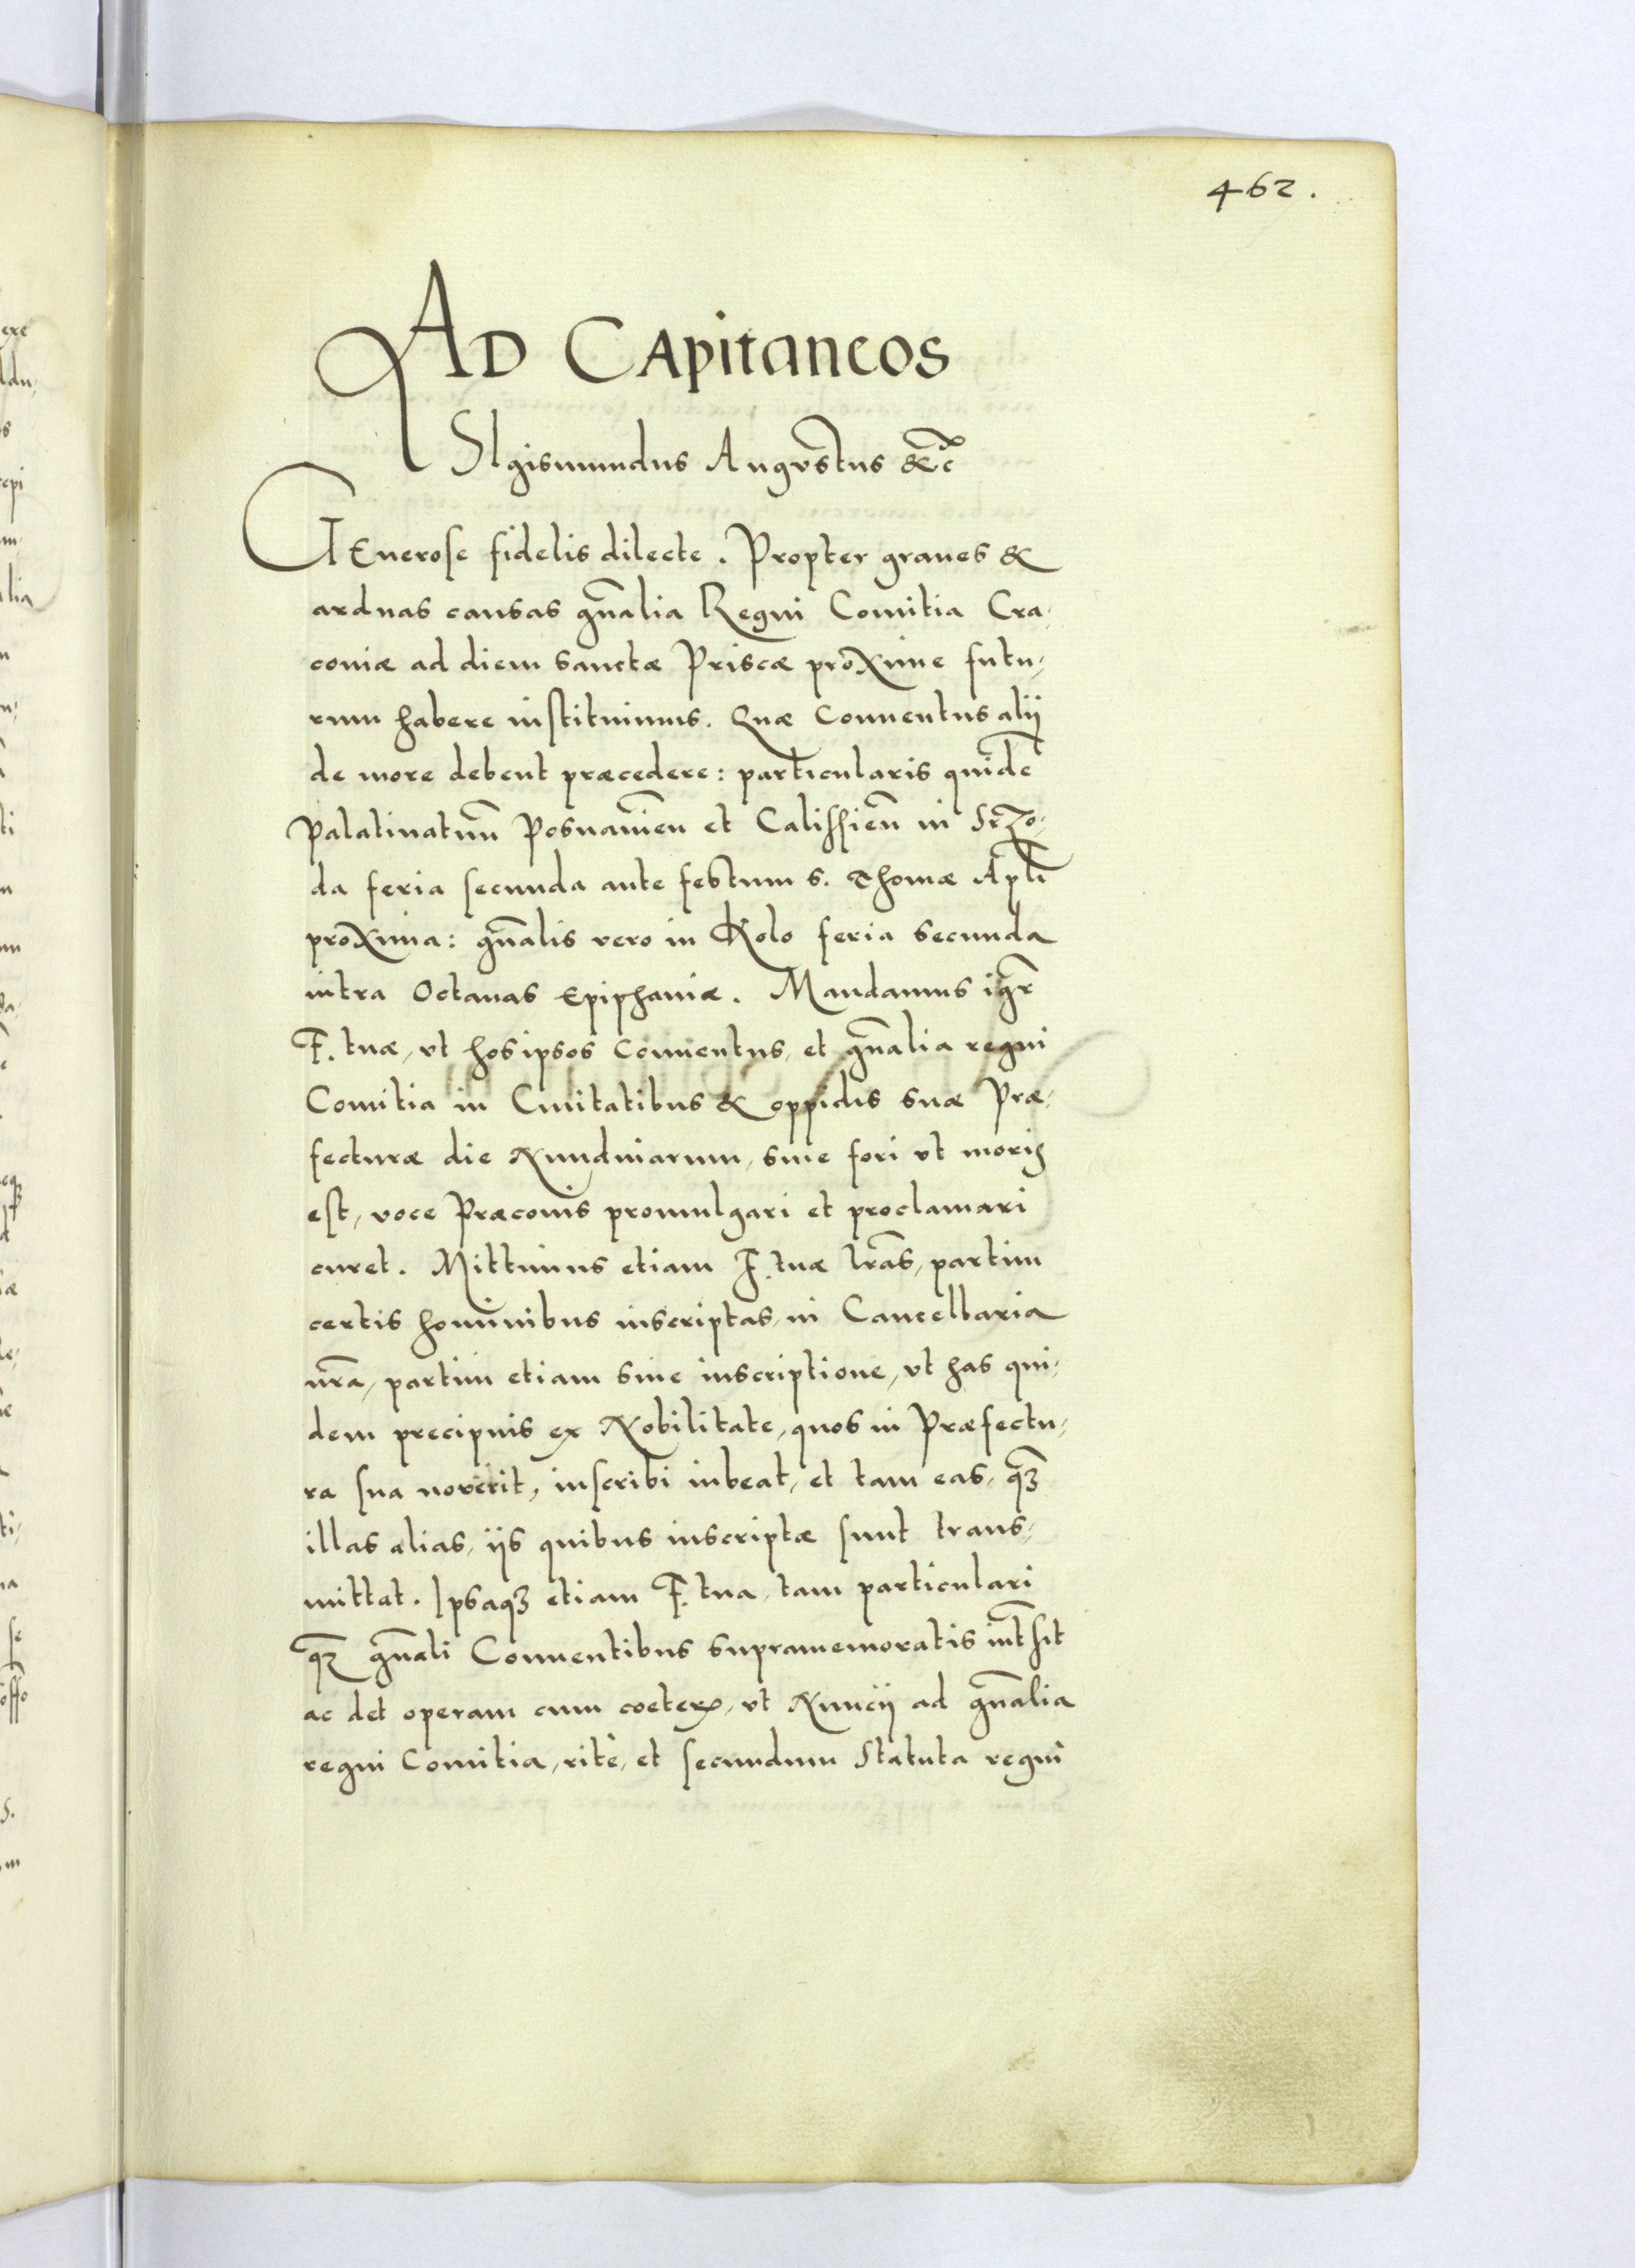 462.
AD CApitaneos
SIgismundus Augustus &c̄
GEnerose fidelis dilecte. Propter graues &
arduas causas gn̄alia Regni Comitia Cra,
couiæ ad diem sanctæ Priscæ proxime futu,
rum habere instituimus. Quæ Conuentus alij
de more debent præcedere: particularis quidē
Palatinatuū Posnanień et Calissień in Srzo,
da feria secunda ante festum s. Thomæ Apl̄i
proxima: gn̄alis vero in Kolo feria secunda
intra Octauas Epiphaniæ. Mandamus igr̄
F. tuæ, vt hos ipsos Conuentus, et gn̄alia regni
Comitia in Ciuitatibus & oppidis suæ Præ,
fecturæ die Nundinarum, siue fori vt moris
est, voce Præconis promulgari et proclamari
curet. Mittimus etiam F. tuæ lr̄as, partim
certis hominibus inscriptas, in Cancellaria
nr̄a, partim etiam sine inscriptione, vt has qui,
dem precipuis ex Nobilitate, quos in Præfectu,
ra sua norerit, inscribi iubeat, et tam eas, qꝫ̄
illas alias, ijs quibus inscriptæ sunt trans,
mittat. Ipsaqꝫ etiam F. tua, tam particulari
qꝫ̄ gn̄ali Conuentibus supramemoratis int̄sit
ac det operam cum coeteris, vt Nuncij ad gn̄alia
regni Comitia, ritè, et secundum Statuta regni